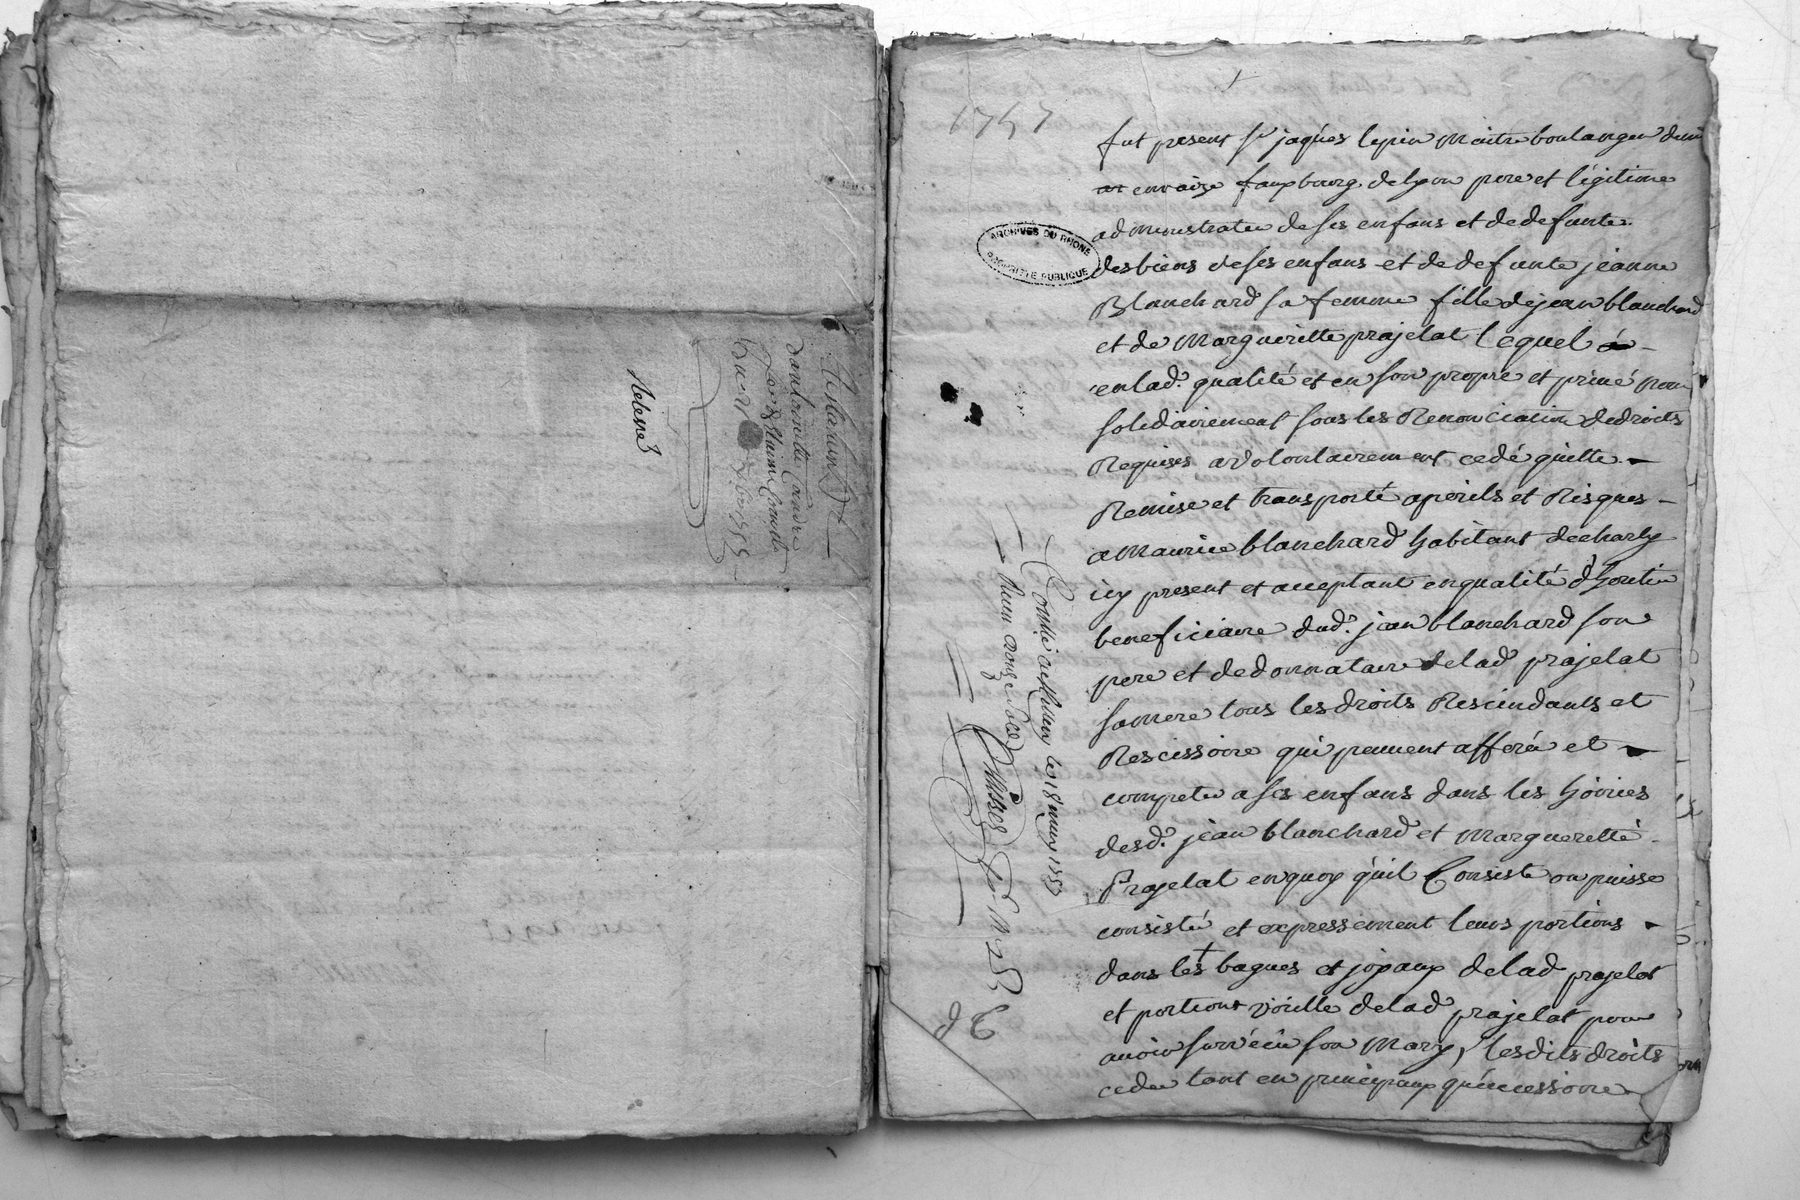 Testament
1757
fut present sr jaques lepin maitre boulanger demt
en vaize fauxbourg de lyon pere et légitime
administrateur de ses enfans et de defunte
des biens de ses enfans et de defunte jeanne
Blanchard sa femme fille de jean blanchard
et de Margueritte prajelat lequel
en lad. qualité et en son propre et privé nom
solidairement sous les Renonciation de droits
Requises a volontairement cedé quitte
Remise et transporté a perils et Risques
a Maurice blanchard habitant de charly
icy present et acceptant en qualité d'hoirtier
beneficiaire dud. jean blanchard son
pere et de donnataire de lad prajelat
sa mere tous les droits Rescindants et
Rescissoire qui peuvent afferer et
competer a ses enfans dans les hoiries
desd. jean blanchard et marguerette
Prajelat en quoy qu'il Consiste ou puisse
consisté et expressement leurs portions
dans les bagues et joyaux de lad prajelat
et portions virille de lad prajelat pour
avoir survécu son mary, lesdits droits
ceder tant en principaux qu'accessoire
ARCHIVES DU RHONE
PROPRIÉTÉ PUBLIQUE
Conllé a Millery le 18 may 1757